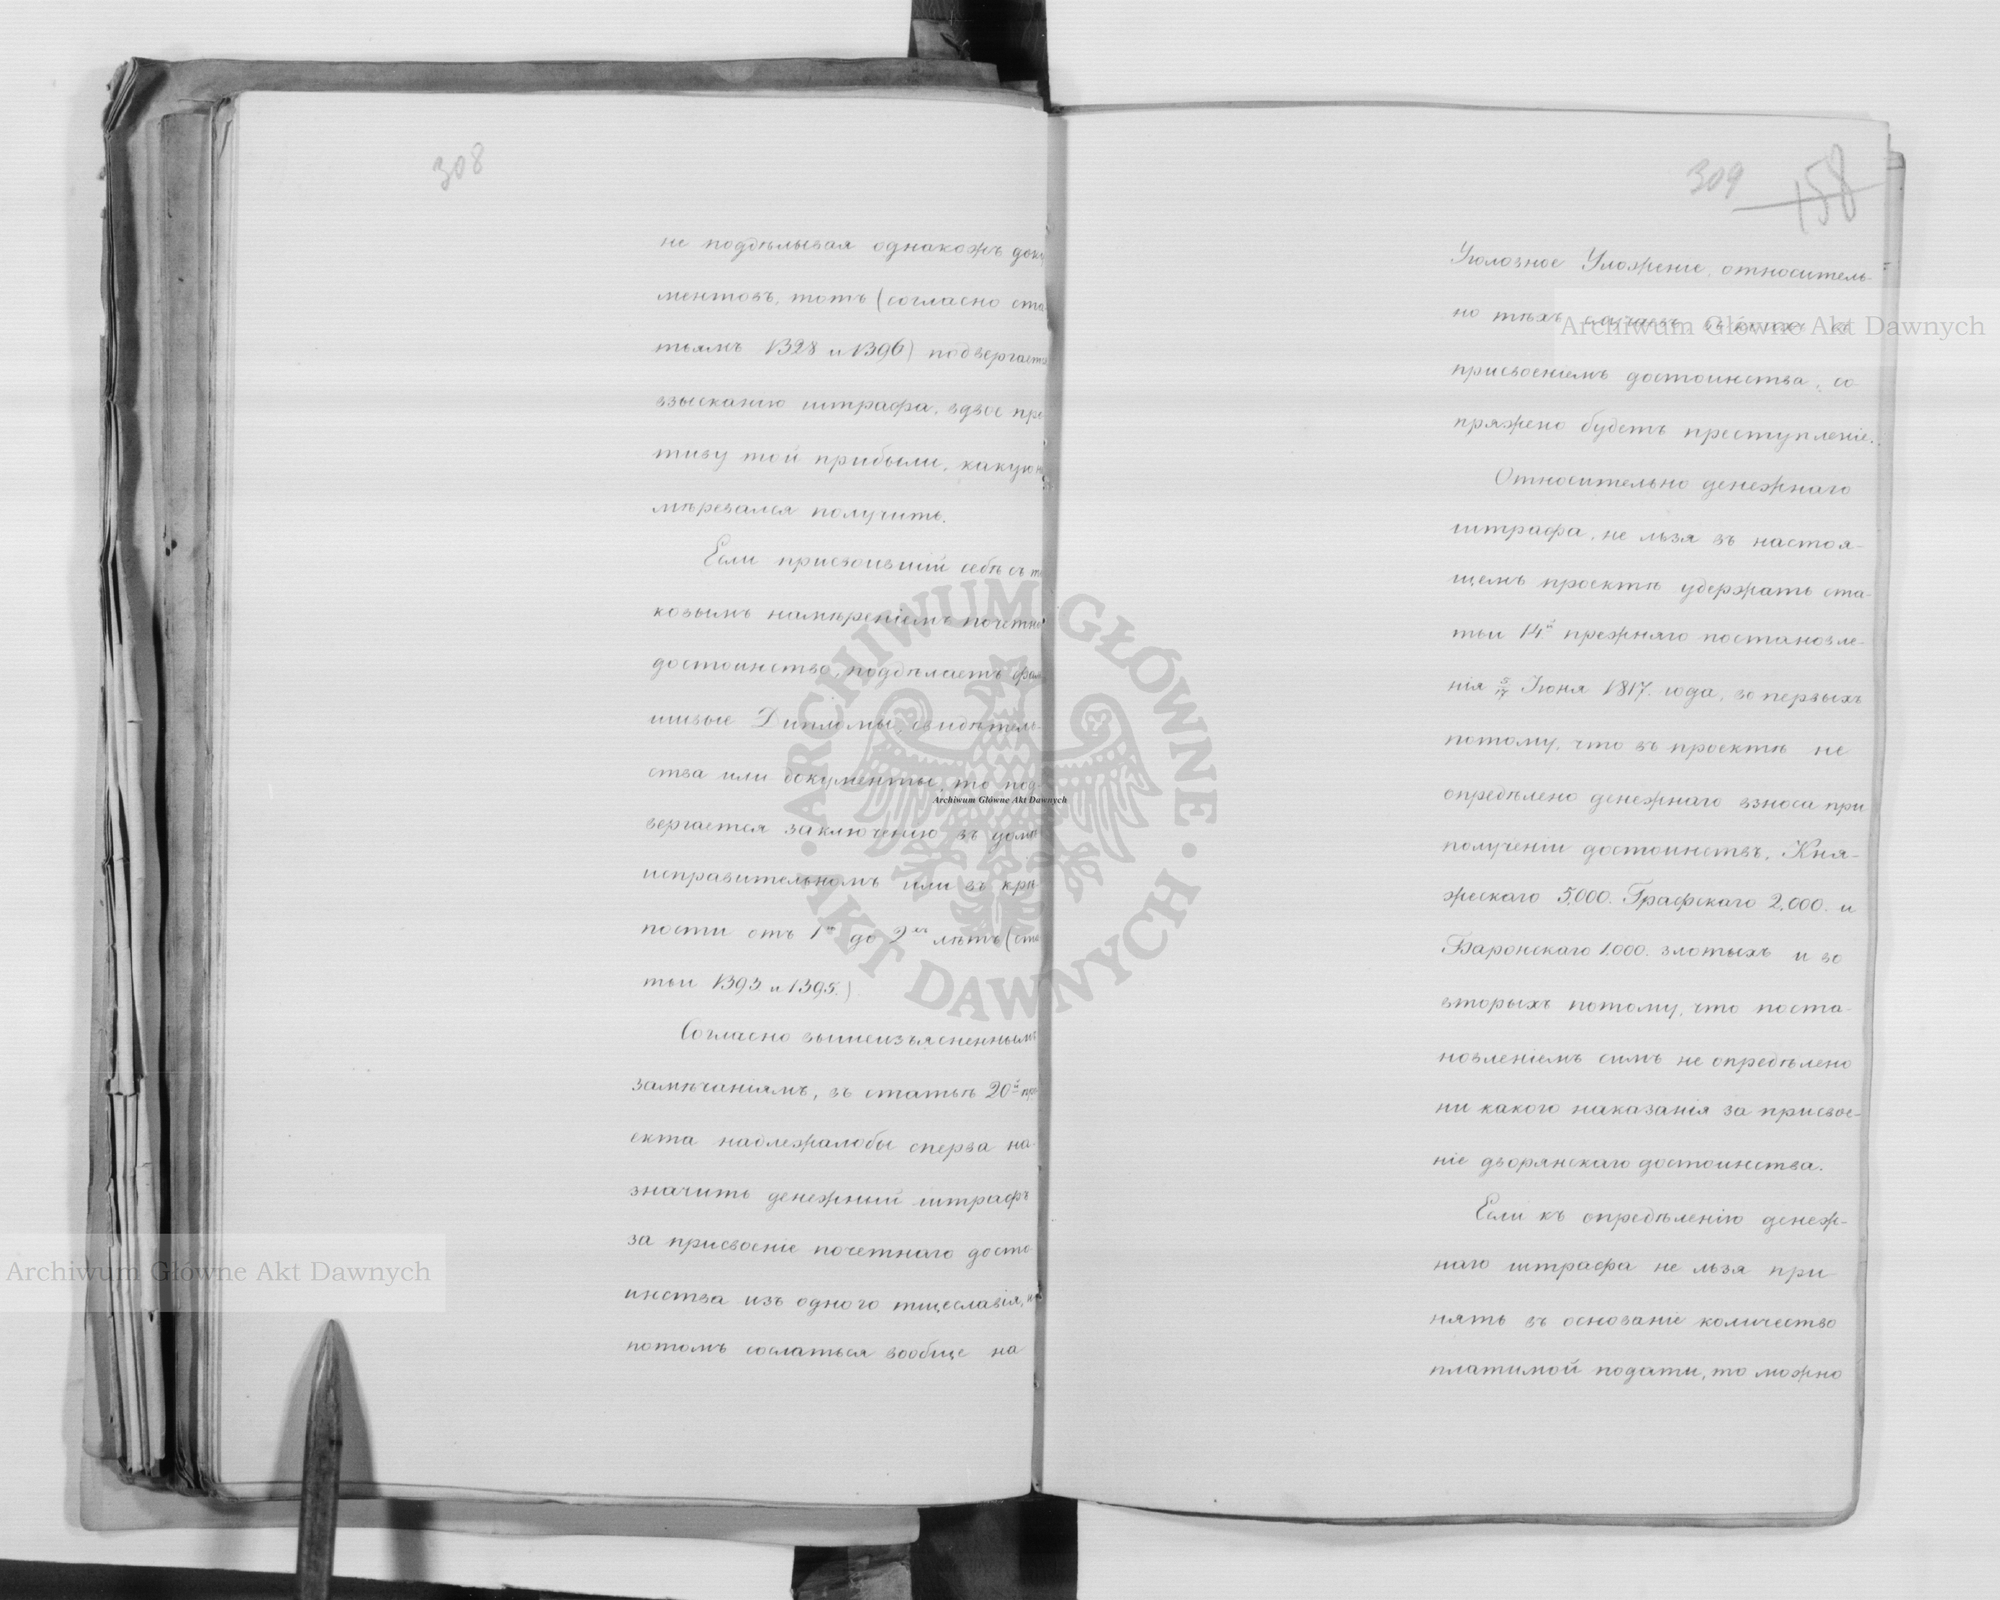 308
не поддѣлывая однакожъ доку
ментовъ, тотъ (согласно ста
тьямъ 1328 и 1396) подвергаетс
взысканію штрафа, вдвое про
тиву той прибыли, какую на
мѣревался получить.
Если присвоившій себѣ съ та
ковымъ намѣреніемъ почетно
достоинство, поддѣлаетъ фаль
шивые Дипломы, свидѣтель-
ства или документы, то под-
вергается заключенію въ домѣ
исправительномъ или въ крѣ-
пости отъ 1го до 2хъ лѣтъ (ста
тьи 1393 и 1395.)
Согласно вышеизъясненнымъ
замѣчаніямъ, въ статьѣ 20й про
екта надлежалобы сперва на-
значить денежный штрафъ
за присвоеніе почетнаго досто-
инства изъ одного тщеславія, и
потомъ сослаться вообще на
309 158
Уголовное Уложеніе, относитель-
но тѣхъ случаевъ въ коихъ съ
присвоеніемъ достоинства, со-
пряжено будетъ преступленіе.
Относительно денежнаго
штрафа, не льзя въ настоя-
щемъ проектѣ удержать ста-
тьи 14й прежняго постановле-
нія 5/17 Іюня 1817. года, во первыхъ
потому, что въ проектѣ не
опредѣлено денежнаго взноса при
полученіи достоинствъ, Кня-
жескаго 5,000. Графскаго 2,000. и
Баронскаго 1,000. злотыхъ и во
вторыхъ потому, что поста-
новленіемъ симъ не опредѣлено
ни какого наказанія за присвое-
ніе дворянскаго достоинства.
Если къ опредѣленію денеж-
наго штрафа не льзя при
нять въ основаніе количество
платимой подати, то можно
Archiwum Główne Akt Dawnych
Archiwum Główne Akt Dawnych
Archiwum Główne Akt Dawnych
ARCHIWUM GŁÓWNE · AKT DAWNYCH ·